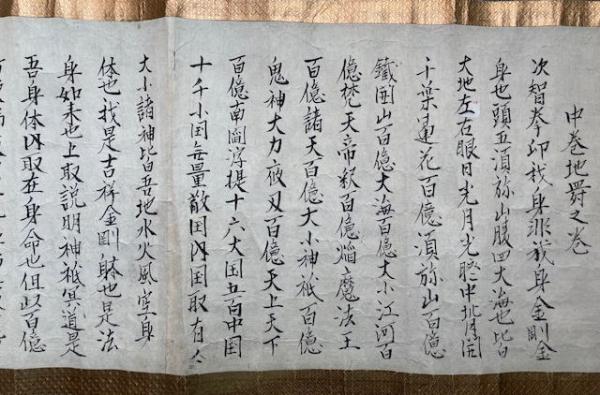 中巻地爵之巻
次智拳印我身非我身金剛金
身也頭五須弥山腹四大海也皆
大地左右眼日光月光臍中北月開
千葉蓮花百億須弥山百億
鐵国山百億大海百億大小江河百
億梵天帝釈百億焔魔法王
百億諸天百億大小神祇百億
鬼神大力夜叉百億天上天下
百億南閻浮提十六大国五百中国
十千小国無量散国内国取有
大小諸神皆吾地水火風空身
体也我是吉祥金剛躰也是法
身如来也上取説明神祇冥道是
吾身体内取在身命也但此百億